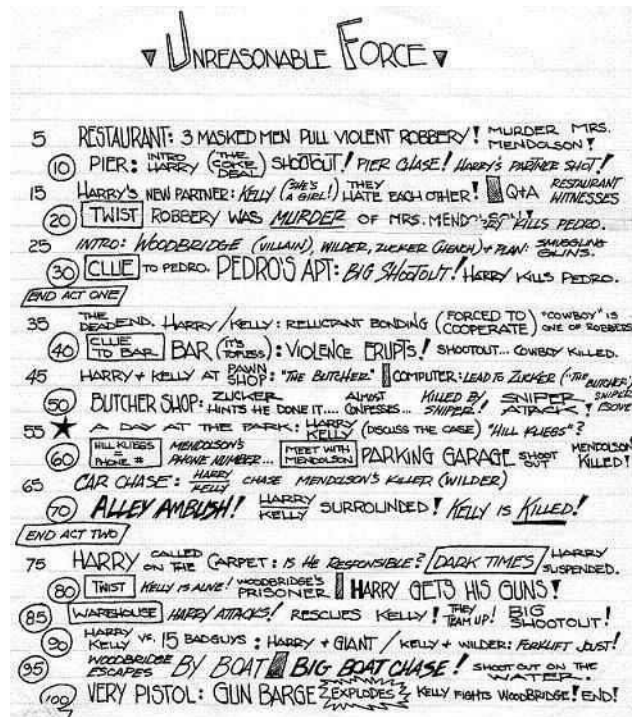 UNREASONABLE FORCE
5 RESTAURANT: 3 MASKED MEN PULL VIOLENT ROBBERY! MURDER MRS. MENDOLSON!
10 PIER: INTRO HARRY (THE COKE DEAL) SHOOTOUT! PIER CHASE! HARRY'S PARTNER SHOT!
15 HARRY'S NEW PARTNER: KELLY (SHE'S A GIRL!) THEY HATE EACH OTHER! Q+A RESTAURANT WITNESSES
20 TWIST ROBBERY WAS MURDER OF MRS. KILLS PEDRO.
25 INTRO: WOODBRIDGE (VILLAIN), WILDER, ZUCKER (HENCH) + PLAN: SMUGGLING GUNS.
30 CLUE TO PEDRO. PEDRO'S APT: BIG SHOOTOUT! HARRY KILLS PEDRO.
END ACT ONE
35 THE DEADEND. HARRY/KELLY: RELUCTANT BONDING (FORCED TO COOPERATE) "COWBOY" IS ONE OF ROBBERS
40 CLUE TO BAR BAR (IT'S TOPLESS): VIOLENCE ERUPTS! SHOOTOUT... COWBOY KILLED.
45 HARRY + KELLY AT PAWN SHOP: "THE BUTCHER." COMPUTER: LEAD TO ZUCKER ("THE BUTCHER")
50 BUTCHER SHOP: ZUCKER HINTS HE DONE IT.... ALMOST CONFESSES... KILLED BY SNIPER! SNIPER ATTACK!
55 ★ A DAY AT THE PARK: HARRY KELLY (DISCUSS THE CASE) "HILL KLIEGS"?
60 HILL KLIEGS = PHONE # MENDOLSON'S PHONE NUMBER... MEET WITH MENDOLSON PARKING GARAGE SHOOT OUT MENDOLSON KILLED!
65 CAR CHASE: HARRY KELLY CHASE MENDOLSON'S KILLER (WILDER)
70 ALLEY AMBUSH! HARRY KELLY SURROUNDED! KELLY IS KILLED!
END ACT TWO
75 HARRY CALLED ON THE CARPET: IS HE RESPONSIBLE? DARK TIMES HARRY SUSPENDED.
80 TWIST KELLY IS ALIVE! WOODBRIDGE'S PRISONER HARRY GETS HIS GUNS!
85 WAREHOUSE HARRY ATTACKS! RESCUES KELLY! THEY TEAM UP! BIG SHOOTOUT!
90 HARRY KELLY VS. 15 BADGUYS: HARRY + GIANT / KELLY + WILDER: FORKLIFT JOUST!
95 WOODBRIDGE ESCAPES BY BOAT BIG BOAT CHASE! SHOOT OUT ON THE WATER.
100 VERY PISTOL: GUN BARGE EXPLODES KELLY FIGHTS WOODBRIDGE! END!